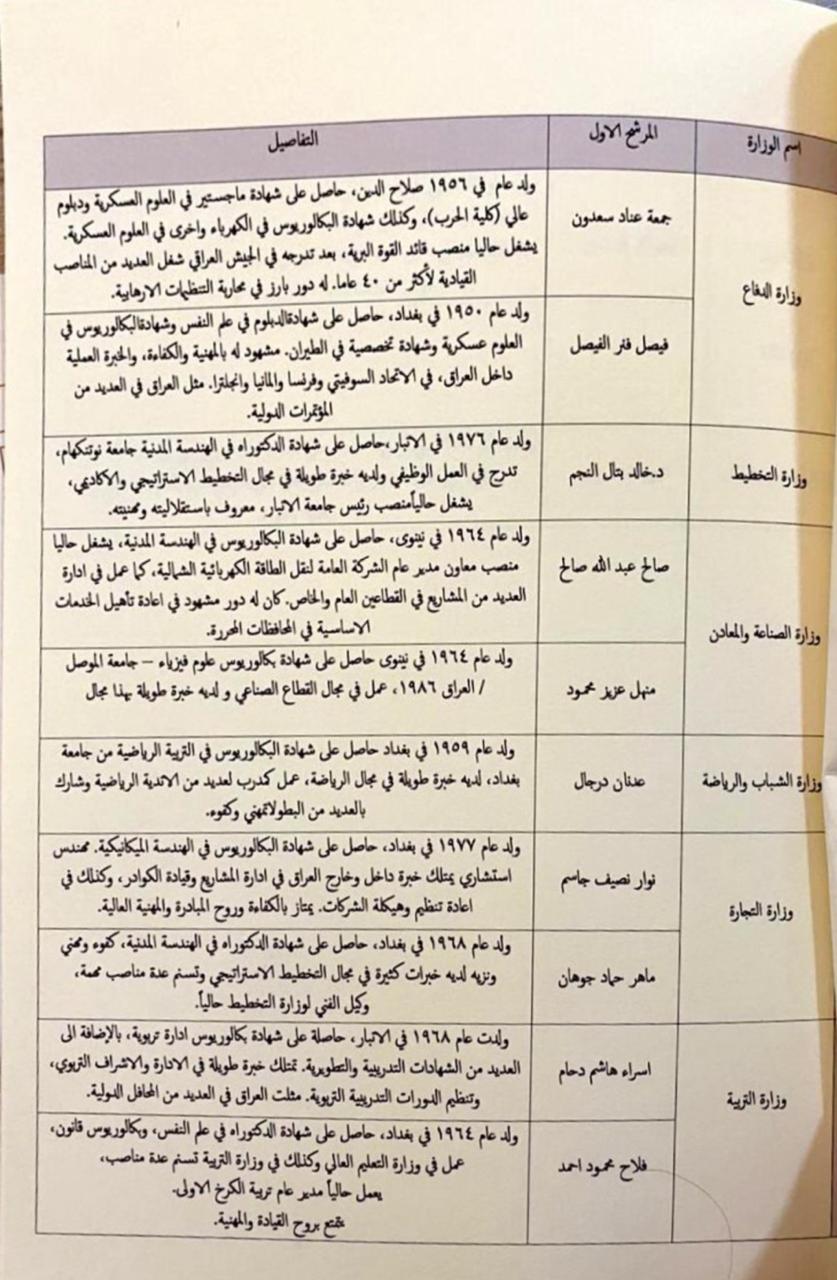 اسم الوزارة
المرشح الاول
التفاصيل
وزارة الدفاع
جمعة عناد سعدون
ولد عام في ١٩٥٦ صلاح الدين، حاصل على شهادة ماجستير في العلوم العسكرية ودبلوم
عالي (كلية الحرب)، وكذلك شهادة البكالوريوس في الكهرباء واخرى في العلوم العسكرية.
يشغل حاليا منصب قائد القوة البرية، بعد تدرجه في الجيش العراقي شغل العديد من المناصب
القيادية لأكثر من ٤٠ عاما. له دور بارز في محاربة التنظيمات الارهابية.
فيصل فنر الفيصل
ولد عام ١٩٥٠ في بغداد، حاصل على شهادةالدبلوم في علم النفس وشهادةالبكالوريوس في
العلوم عسكرية وشهادة تخصصية في الطيران. مشهود له بالمهنية والكفاءة، والخبرة العملية
داخل العراق، في الاتحاد السوفيتي وفرنسا والمانيا وانجلترا. مثل العراق في العديد من
المؤتمرات الدولية.
وزارة التخطيط
د.خالد بتال النجم
ولد عام ١٩٧٦ في الانبار،حاصل على شهادة الدكتوراه في الهندسة المدنية جامعة نوتنكهام،
تدرج في العمل الوظيفي ولديه خبرة طويلة في مجال التخطيط الاستراتيجي والاكاديمي،
يشغل حالياًمنصب رئيس جامعة الانبار، معروف باستقلاليته ومهنيته.
وزارة الصناعة والمعادن
صالح عبد الله صالح
ولد عام ١٩٦٤ في نينوى، حاصل على شهادة البكالوريوس في الهندسة المدنية، يشغل حاليا
منصب معاون مدير عام الشركة العامة لنقل الطاقة الكهربائية الشمالية، كما عمل في ادارة
العديد من المشاريع في القطاعين العام والخاص.كان له دور مشهود في اعادة تأهيل الخدمات
الاساسية في المحافظات المحررة.
منهل عزيز محمود
ولد عام ١٩٦٤ في نينوى حاصل على شهادة بكالوريوس علوم فيزياء – جامعة الموصل
/ العراق ١٩٨٦، عمل في مجال القطاع الصناعي و لديه خبرة طويلة بهذا مجال
وزارة الشباب والرياضة
عدنان درجال
ولد عام ١٩٥٩ في بغداد حاصل على شهادة البكالوريوس في التربية الرياضية من جامعة
بغداد، لديه خبرة طويلة في مجال الرياضة، عمل كمدرب لعديد من الاندية الرياضية وشارك
بالعديد من البطولاتمهني وكفوء.
وزارة التجارة
نوار نصيف جاسم
ولد عام ١٩٧٧ في بغداد، حاصل على شهادة البكالوريوس في الهندسة الميكانيكية. مهندس
استشاري يمتلك خبرة داخل وخارج العراق في ادارة المشاريع وقيادة الكوادر، وكذلك في
اعادة تنظيم وهيكلة الشركات. يمتاز بالكفاءة وروح المبادرة والمهنية العالية.
ماهر حماد جوهان
ولد عام ١٩٦٨ في بغداد، حاصل على شهادة الدكتوراه في الهندسة المدنية، كفوء ومهني
ونزيه لديه خبرات كثيرة في مجال التخطيط الاستراتيجي وتسنم عدة مناصب مهمة،
وكيل الفني لوزارة التخطيط حالياً.
وزارة التربية
اسراء هاشم دحام
ولدت عام ١٩٦٨ في الانبار، حاصلة على شهادة بكالوريوس ادارة تربوية، بالإضافة الى
العديد من الشهادات التدريبية والتطويرية. تمتلك خبرة طويلة في الادارة والاشراف التربوي،
وتنظيم الدورات التدريبية التربوية. مثلت العراق في العديد من المحافل الدولية.
فلاح محمود احمد
ولد عام ١٩٦٤ في بغداد، حاصل على شهادة الدكتوراه في علم النفس، وبكالوريوس قانون،
عمل في وزارة التعليم العالي وكذلك في وزارة التربية تسنم عدة مناصب،
يعمل حالياً مدير عام تربية الكرخ الاولى.
يتمتع بروح القيادة والمهنية.